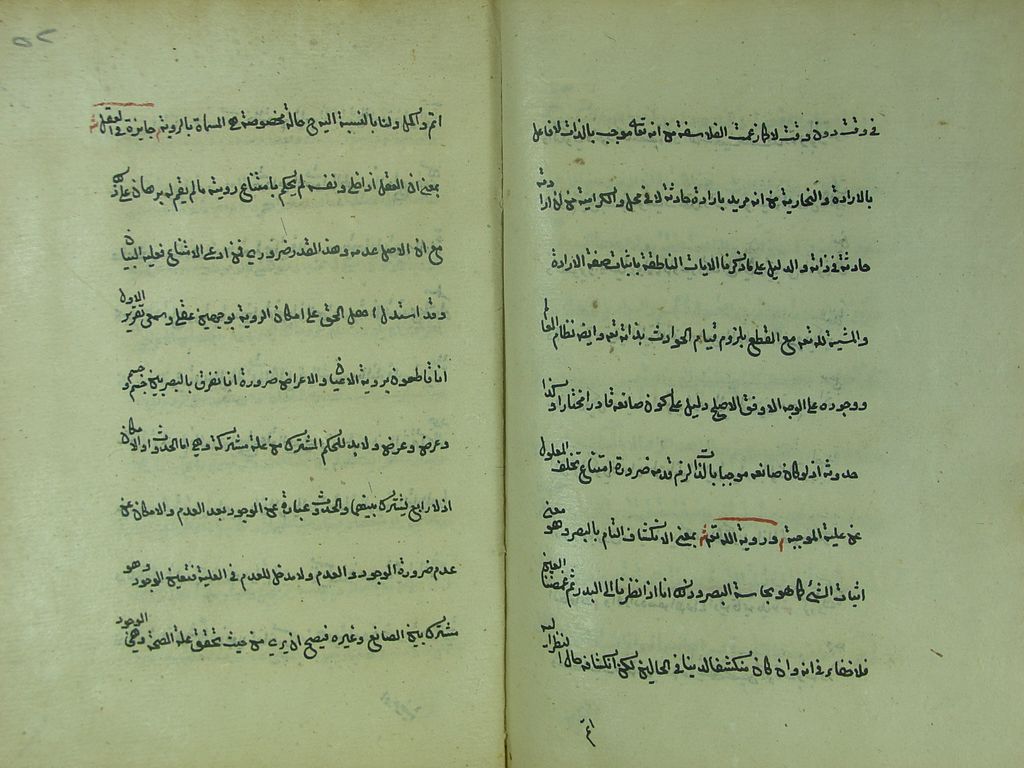 في وقت دون وقت لا كما زعمت الفلاسفة من انه تعالى موجب بالذات لا فاعل
بالارادة والنجارية من انه مريد بارادة حادثة لا في محل والكرامية من ان ارادته
حادثة في ذاته والدليل على ما ذكرنا الايات الناطقة باثبات صفة الارادة
والمشية لله تعه مع القطع بلزوم قيام الحوادث بذاته تعه وايضه نظام العالم
ووجوده على الوجه الاوفق الاصلح دليل على كون صانعه قادرا مختارا وكذا
حدوثه اذ لو كان صانعه موجبا بالذات لزم قدمه ضرورة امتناع تخلف المعلول
عن علية الموجبة وروية الله تعه بمعنى الانكشاف التام بالبصر وهو معنى
اثبات الشئ كما هو بحاسة البصر وذلك انا اذا نظرنا الى البدر ثم غمضنا العين
فلا خفاء في انه وان كان منكشفا لدينا في الحالين لكن انكشافه حال النظر اليه
اتم
اتم واكمل ولنا بالنسبة اليه ح حالة مخصوصة هي المسماة بالروية جايزة في العقل
بمعنى ان العقل اذا خلي ونفسه لم يحكم بامتناع رويته ما لم يقم له برهان على ذلك
مع ان الاصل عدمه وهذا القدر ضروري فمن ادعى الامتناع فعليه البيان
وقد استدل اهل الحق على امكان الروية بوجهين عقلي وسمعي تقرير الاول
انا قاطعون بروية الاعيان والاعراض ضرورة انا نفرق بالبصر بين جسم وجسم
وعرض وعرض ولا بد للحكم المشترك من علة مشتركة وهي اما الحدوث او الامكان
اذ لا رابع يشترك بينهما والحدوث عبارة عن الوجود بعد العدم والامكان عن
عدم ضرورة الوجود والعدم ولا مدخل للعدم في العلية فتعين الوجود وهو
مشترك بين الصانع وغيره فيصح ان يرى من حيث تحقق علة الصحة وهي الوجود